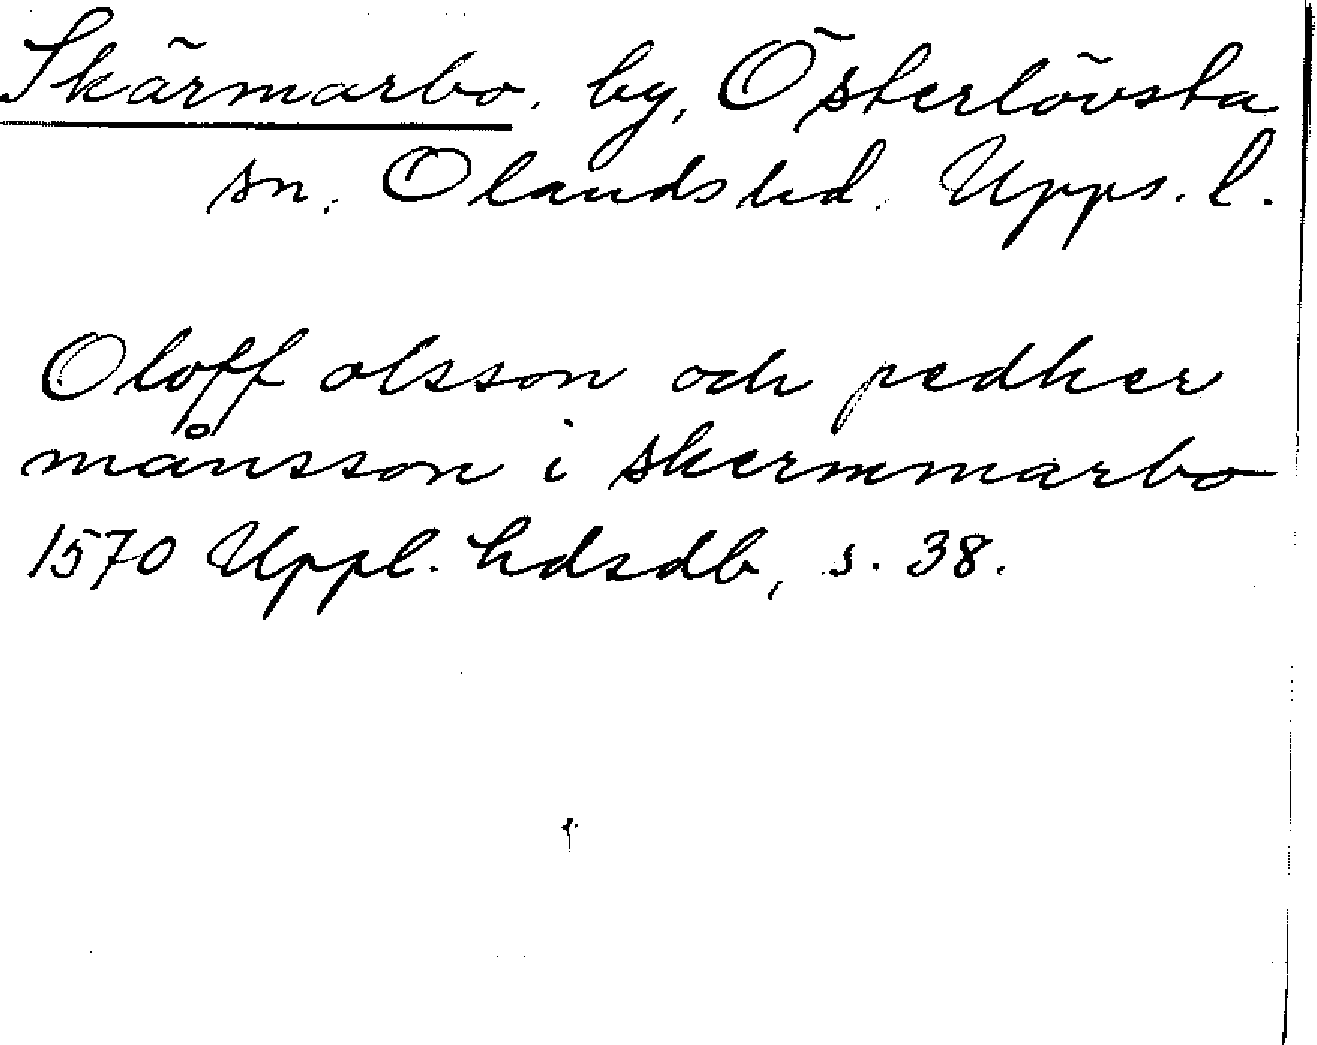 Skärmarbo, by, Österlövsta
sn. Olands hd. Upps. l.
Oloff olsson och pedher
månsson i skermmarbo
1570 Uppl. hdsdb, s. 38.